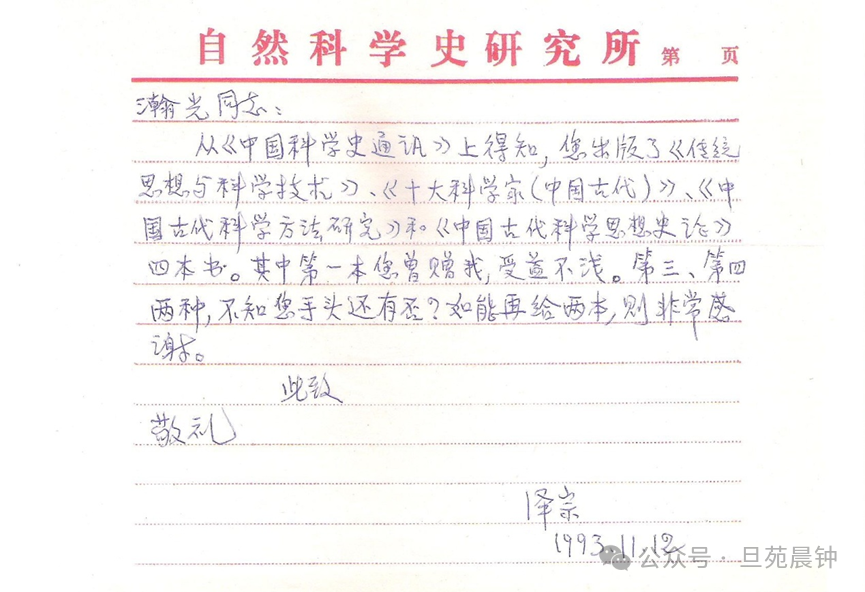 自然科学史研究所 第 页
瀚光同志：
从《中国科学史通讯》上得知，您出版了《传统
思想与科学技术》、《十大科学家（中国古代）》、《中
国古代科学方法研究》和《中国古代科学思想史论》
四本书。其中第一本您曾赠我，受益不浅。第三、第四
两种，不知您手头还有否？如能再给两本，则非常感
谢。
此致
敬礼
泽宗
1993.11.12
公众号·旦苑晨钟